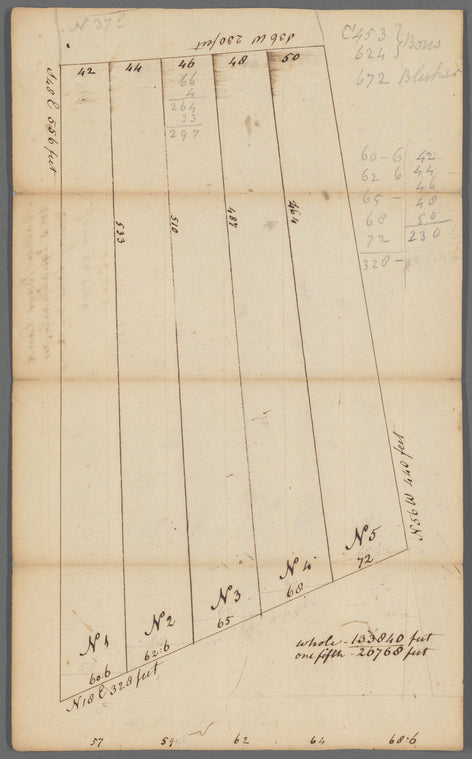 N 37 E
S 36 W 230 feet
E 453
624
Bors
672 Bluker
42 44 46 48 50
66
4
264
33
297
60-6
62 6
65 -
68
72
328 -
42
44 -
46
48
50
230
N 48 E 556 feet
533
510
487
464
N 56 W 440 feet
No 1
No 2
No 3
No 4
No 5
60:6
62:6
65
68
72
N 18 E 328 feet
whole - 133840 feet
one fifth - 26768 feet
57 59: 62 64 68:6